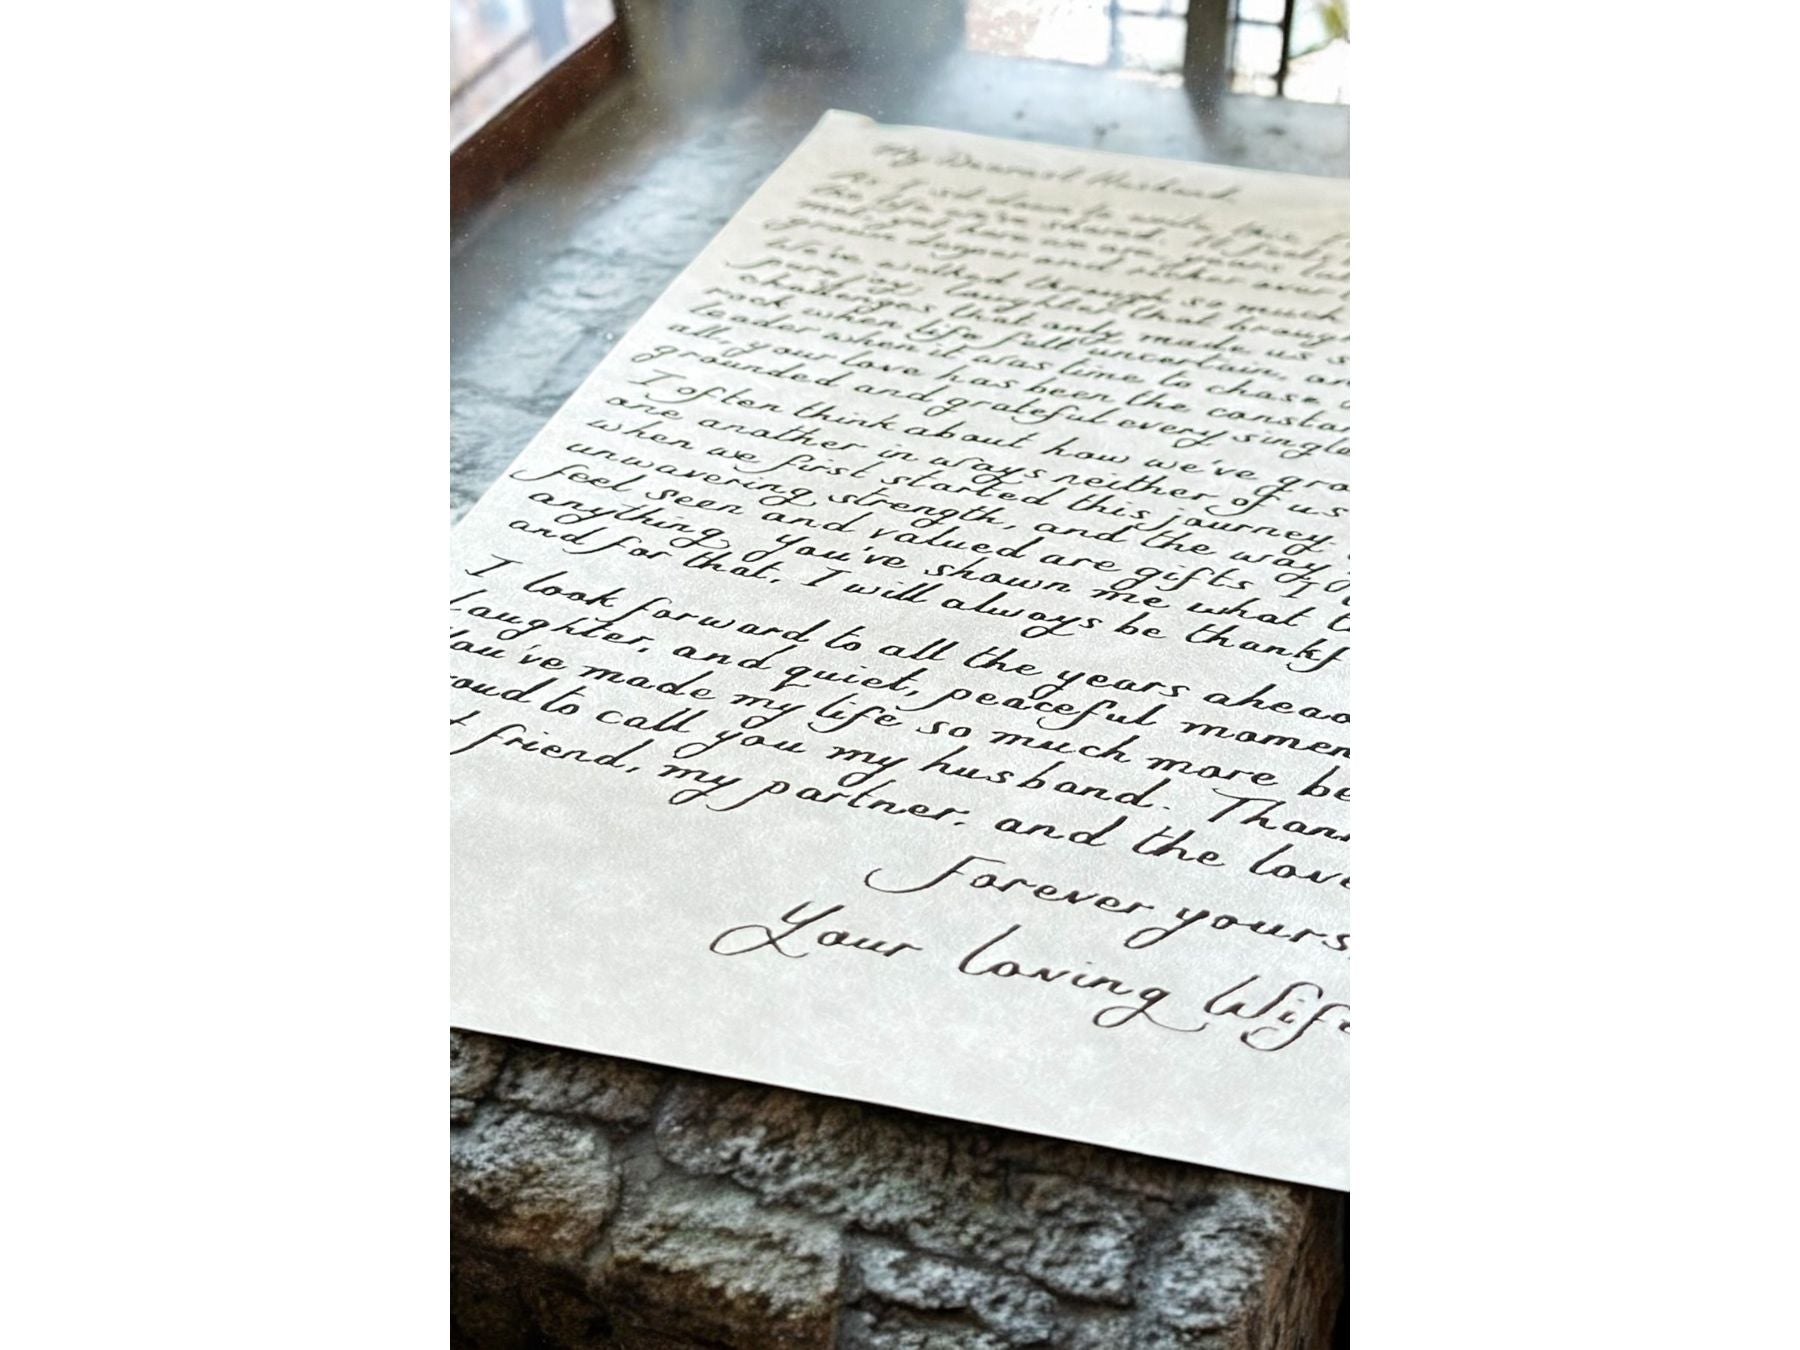 My Dearest Husband
As I sit down to write this
the life we've shared. It feels
met, yet here we are, years
grown deeper and richer over
We've walked through so much
pure joy, laughter that
challenges that only made us
rock when life felt uncertain,
leader when it was time to chase
all, your love has been the constan
grounded and grateful every single
I often think about how we've gro
one another in ways neither of us
when we first started this journey.
unwavering strength, and the way
feel seen and valued are gifts I
anything. You've shown me what
and for that, I will always be thankf
I look forward to all the years ahead
laughter, and quiet, peaceful momen
You've made my life so much more be
roud to call you my husband. Than
t friend, my partner, and the love
Forever yours,
Your loving Wife